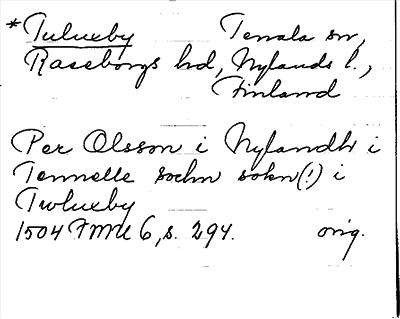 *Tulueby Tenala sn,
Raseborgs hd, Nylands l.,
Finland
Per Olsson i Nylandh i
Tennelle sochn sokn(!) i
Twlueby
1504 FMU 6, s. 294. orig.